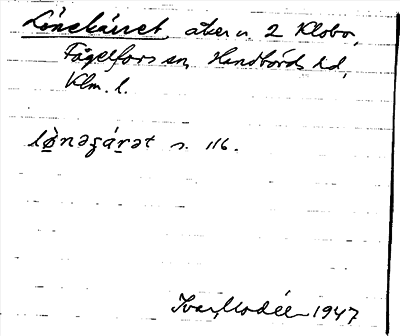 Lönekärret, åker n. 2 Klobo,
Fågelfors sn, Handbörds hd,
Klm. l.
lø̀nəʒárət n. 116.
Ivar Modéer 1947